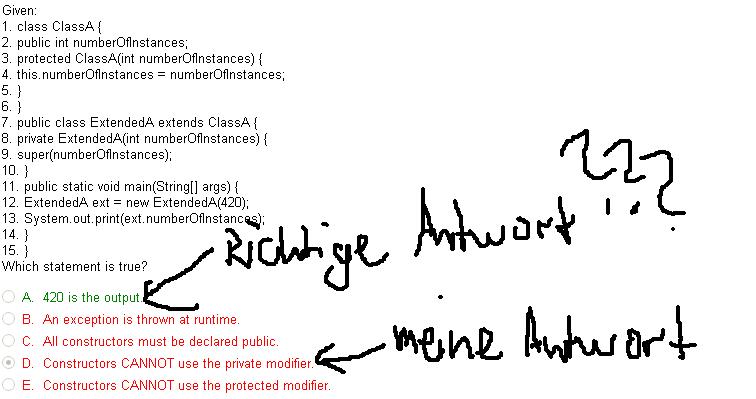 Given:
1. class ClassA {
2. public int numberOfInstances;
3. protected ClassA(int numberOfInstances) {
4. this.numberOfInstances = numberOfInstances;
5. }
6. }
7. public class ExtendedA extends ClassA {
8. private ExtendedA(int numberOfInstances) {
9. super(numberOfInstances);
10. }
11. public static void main(String[] args) {
12. ExtendedA ext = new ExtendedA(420);
13. System.out.print(ext.numberOfInstances);
14. }
15. }
Which statement is true?
Richtige Antwort ???
A. 420 is the output.
B. An exception is thrown at runtime.
C. All constructors must be declared public.
meine Antwort
D. Constructors CANNOT use the private modifier.
E. Constructors CANNOT use the protected modifier.